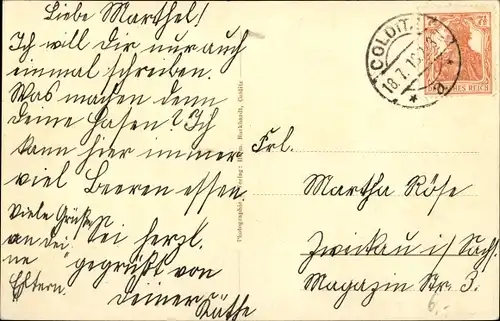 Liebe Marthel!
Ich will Dir nur auch
einmal schreiben.
Was machen denn
Deine Hasen? Ich
kann hier immer
viel Beeren essen.
Viele Grüße
an Dei-
ne
Eltern.
Sei herzl.
gegrüßt von
Deiner
Käthe
Photographie u. Verlag: Burkhardt, Colditz
COLDITZ
18.7.18
7½
DEUTSCHES REICH
Frl.
Martha Röse
Zwickau i/Sachs.
Magazin Str. 3
6,-